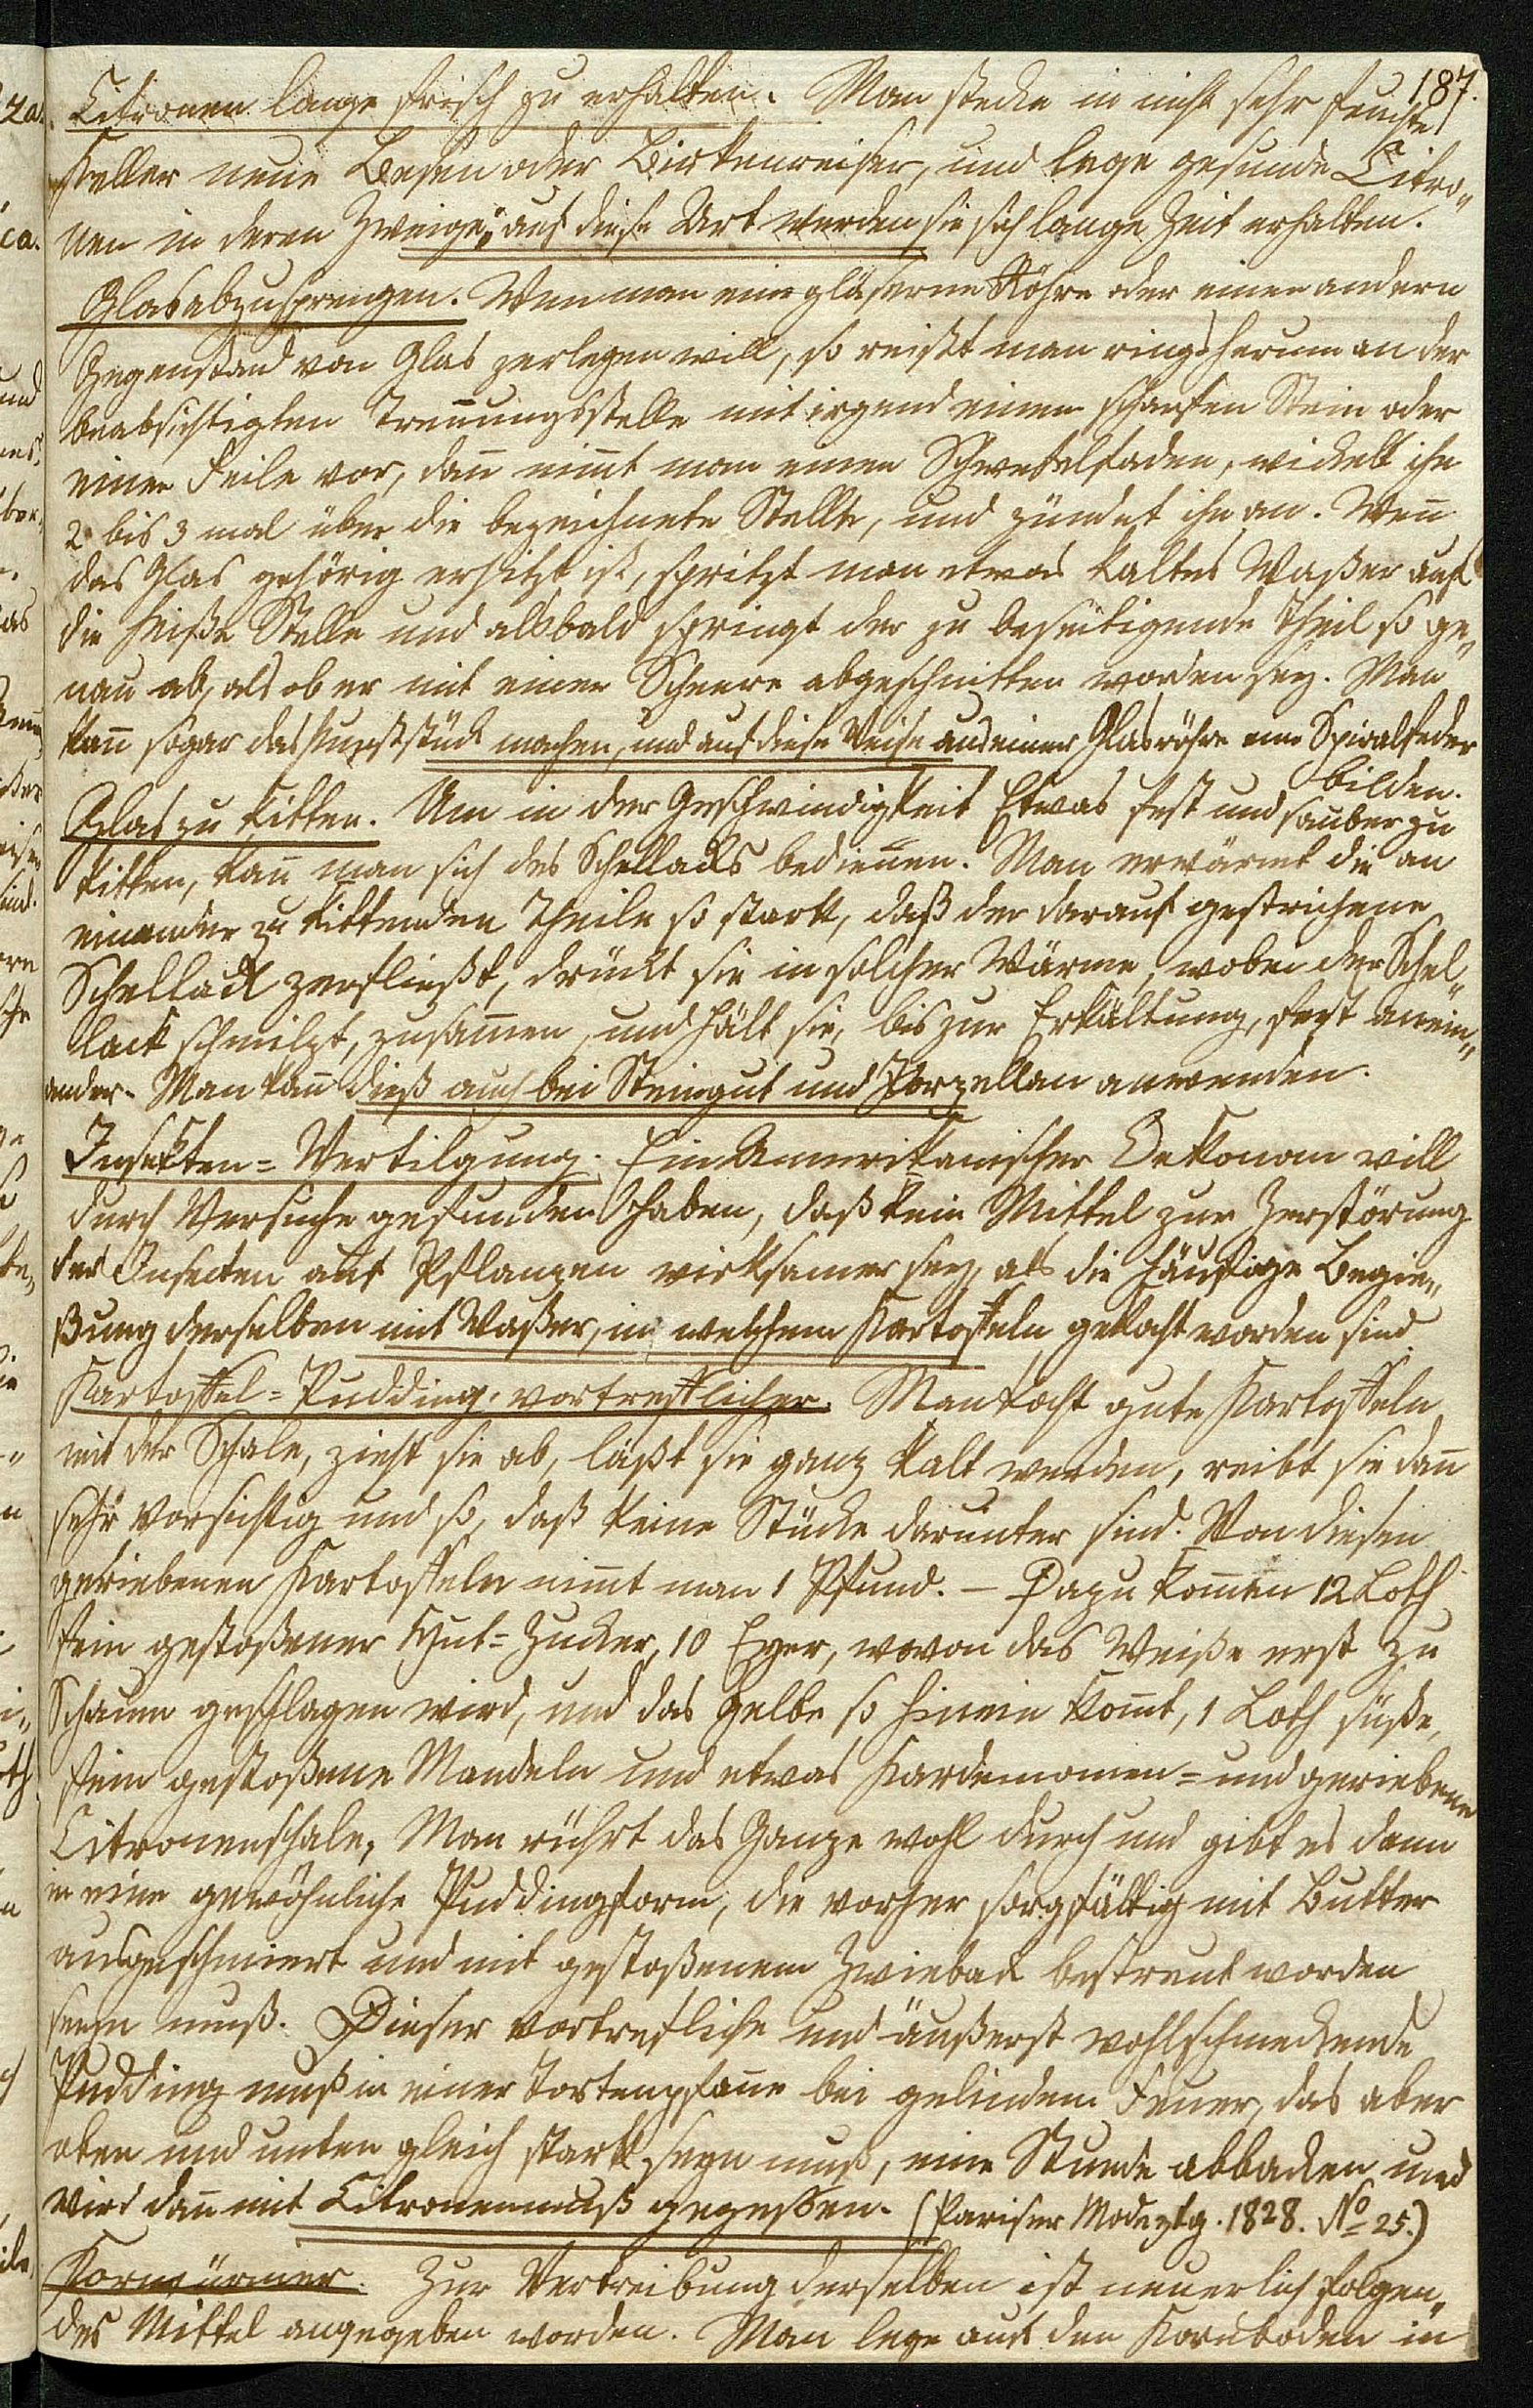 187.
Citronen lange frisch zu erhalten. Man stecke in nicht sehr feuchte
Keller neue Besen oder Birkenreiser, und lege gesunde Citro„
nen in deren Zweige; auf diese Art werden sie sich lange Zeit erhalten.
Glas abzusprengen. Wenn man eine gläserne Röhre oder einen andern
Gegenstand von Glas zerlegen will, so reißt man ringsherum an der
beabsichtigten Treñungsstelle mit irgend einem scharfen Stein oder
einer Feile vor, dañ nim̃t man einen Schwefelfaden, wickelt ihn
2 bis 3 mal über die bezeichnete Stelle, und zündet ihn an. Weñ
das Glas gehörig erhitzt ist, spritzt man etwas kaltes Waßer auf
die heiße Stelle und alsbald springt der zu beseitigende Theil so ge„
nau ab, als ob er mit einer Scheere abgeschnitten worden sey. Man
kañ sogar das Kunststück machen, und auf diese Weise aus einer Glasröhre eine Spiralfeder
bilden.
Glas zu kitten. Um in der Geschwindigkeit Etwas fest und sauber zu
kitten, kañ man sich des Schellacks bedienen. Man erwärmt die an
einander zu kittenden Theile so stark, daß der darauf gestrichene
Schellack zerfließt, drückt sie in solcher Wärme, wobei der Schel„
lack schmilzt, zusam̃en, und hält sie, bis zur Erkältung, fest anein„
ander. Man kañ dieß auch bei Steingut und Porzellan anwenden.
Insekten=Vertilgung. Ein Amerikanischer Oekonom will
durch Versuche gefunden haben, daß kein Mittel zur Zerstörung
der Insecten auf Pflanzen wirksamer sey, als die häufige Begie„
ßung derselben mit Waßer, in welchem Kartoffeln gekocht worden sind
Kartoffel=Pudding, vortrefflicher. Man kocht gute Kartoffeln
mit der Schale, zieht sie ab, läßt sie ganz kalt werden, reibt sie dañ
sehr vorsichtig und so, daß keine Stücke darunter sind. Von diesen
geriebenen Kartoffeln nim̃t man 1 Pfund. — Dazu kom̃en 12 Loth
fein gestoßener Hut=Zucker, 10 Eyer, wovon das Weiße erst zu
Schaum geschlagen wird, und das Gelbe so hinein kom̃t, 1 Loth süße,
fein gestoßene Mandeln und etwas Kardemomen= und geriebene
Citronenschale. Man rührt das Ganze wohl durch und gibt es dann
in eine gewöhnliche Puddingform, die vorher sorgfältig mit Butter
ausgeschmiert und mit gestoßenem Zwieback bestreut worden
seyn muß. Dieser vortrefliche und äußerst wohlschmeckende
Pudding muß in einer Tortenpfañe bei gelindem Feuer, das aber
oben und unten gleich stark seyn muß, eine Stunde abbacken und
wird dañ mit Citronenmuß gegessen. (Pariser Modeztg. 1828. No 25.)
Kornwürmer. Zur Vertreibung derselben ist neuerlich folgen„
des Mittel angegeben worden. Man lege auf den Kornboden in